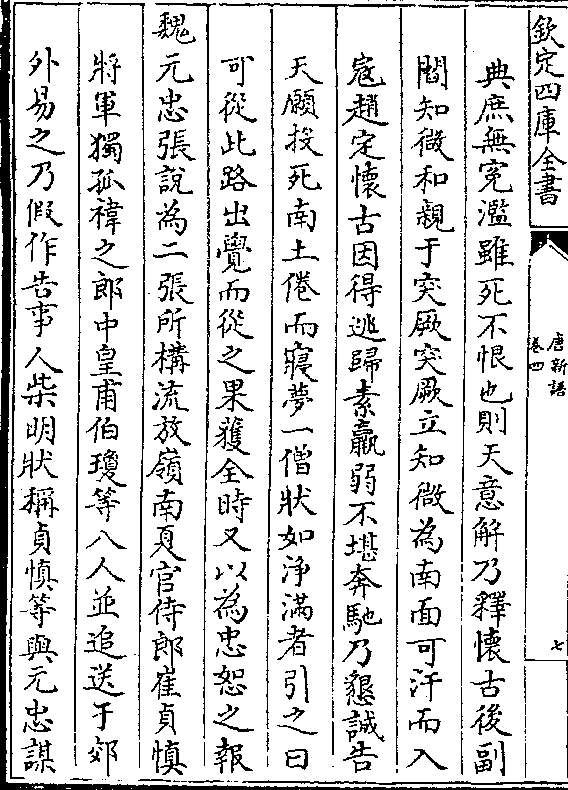 欽定四庫全書
唐新語
卷四
七
典庶無冤濫雖死不恨也則天意解乃釋懷古後副
閻知微和親于突厥突厥立知微為南面可汗而入
寇趙定懷古因得逃歸素羸弱不堪奔馳乃懇誠告
天願投死南土倦而寢夢一僧狀如淨滿者引之曰
可從此路出覺而從之果獲全時又以為忠恕之報
魏元忠張說為二張所構流放嶺南夏官侍郎崔貞慎
將軍獨孤禕之郎中皇甫伯瓊等八人並追送于郊
外易之乃假作告事人柴明狀稱貞慎等與元忠謀